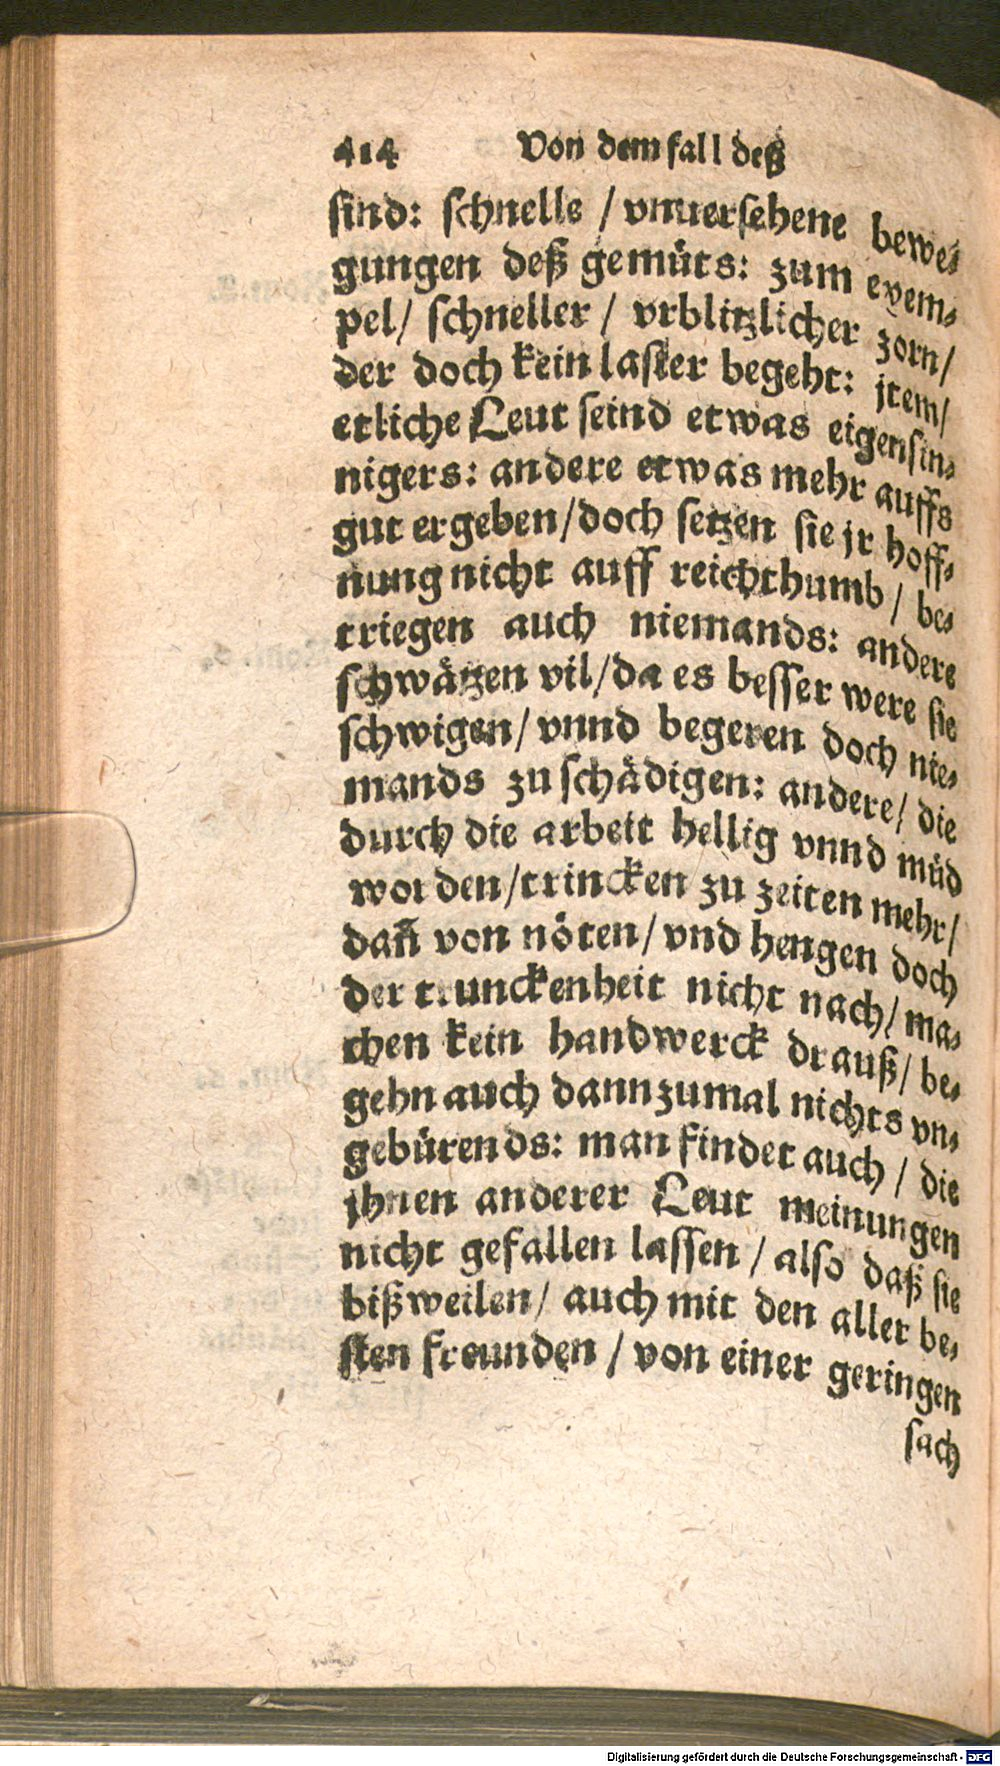 414 Von dem fall deß
sind: schnelle / vnuersehene bewe-
gungen deß gemüts: zum exem-
pel/ schneller / vrblitzlicher zorn/
der doch kein laster begeht: jtem/
etliche Leut seind etwas eigensin-
nigers: andere etwas mehr auffs
gut ergeben/doch setzen sie jr hoff-
nung nicht auff reichthumb / be-
triegen auch niemands: andere
schwätzen vil/da es besser were sie
schwigen/ vnnd begeren doch nie-
mands zu schädigen: andere/ die
durch die arbeit hellig vnnd müd
worden/trincken zu zeiten mehr/
dañ von nöten/ vnd hengen doch
der trunckenheit nicht nach/ ma-
chen kein handwerck drauß/ be-
gehn auch dannzumal nichts vn-
gebürends: man findet auch / die
jhnen anderer Leut meinungen
nicht gefallen lassen / also daß sie
bißweilen/ auch mit den aller be-
sten freunden / von einer geringen
sach
Digitalisierung gefördert durch die Deutsche Forschungsgemeinschaft - DFG